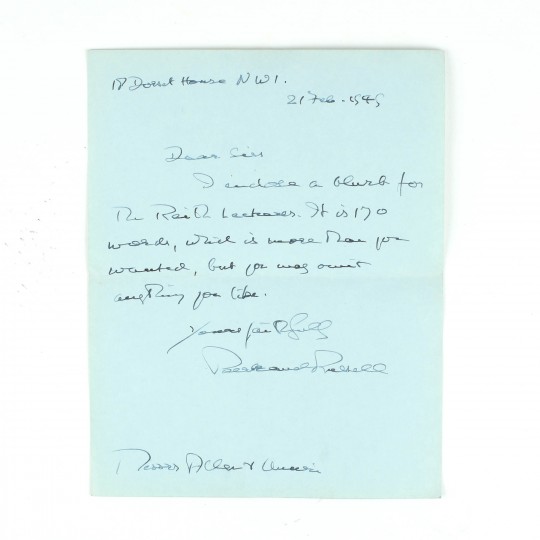 18 Dorset House NW1.
21 Feb. 1949
Dear Sirs
I enclose a blurb for
the Reith Lectures. It is 170
words, which is more than you
wanted, but you may omit
anything you like.
Yours faithfully
Bertrand Russell
Messrs Allen & Unwin